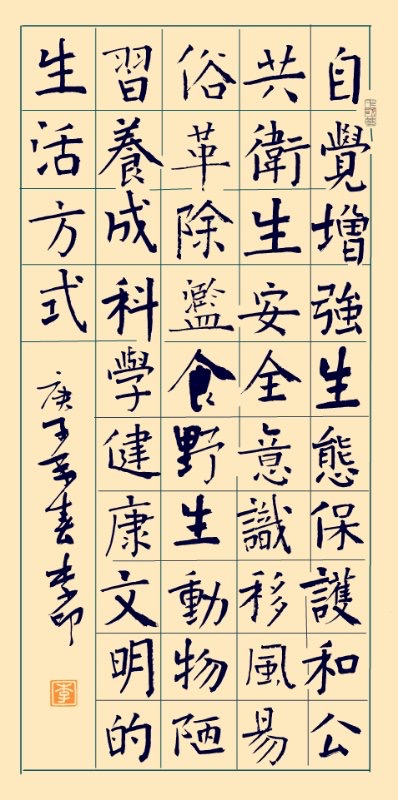 自覺增強生態保護和公
共衛生安全意識移風易
俗革除濫食野生動物陋
習養成科學健康文明的
生活方式
庚子孟春李印
李